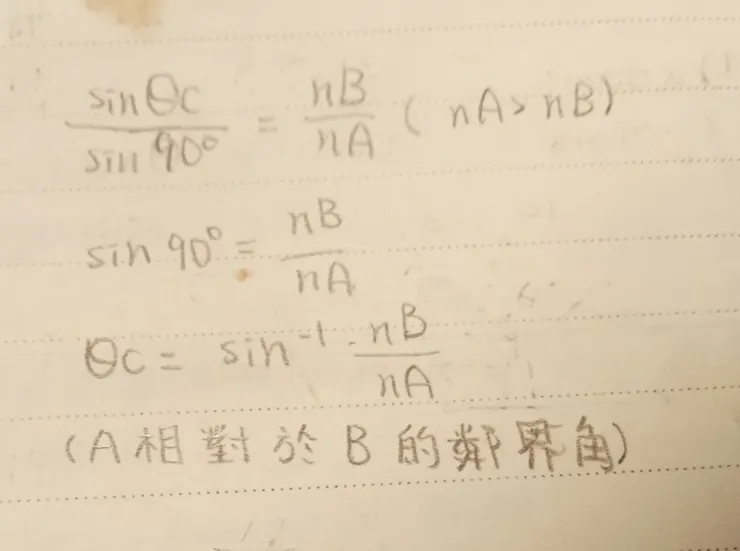 sinθc / sin 90° = nB / nA ( nA > nB)
sin 90° = nB / nA
θc = sin⁻¹ · nB / nA
(A相對於B的鄰界角)